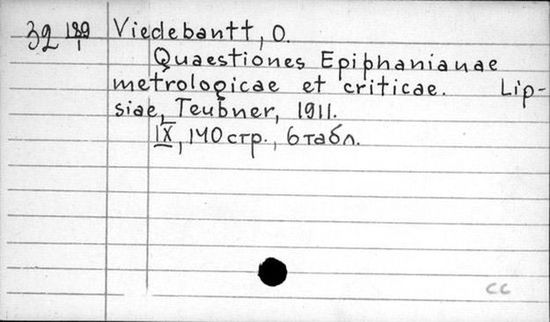 32 189/1 Viedebantt, O.
Quaestiones Epiphanianae
metrologicae et criticae. Lip-
siae, Teubner, 1911.
IX, 140 стр., 6 табл.
cc